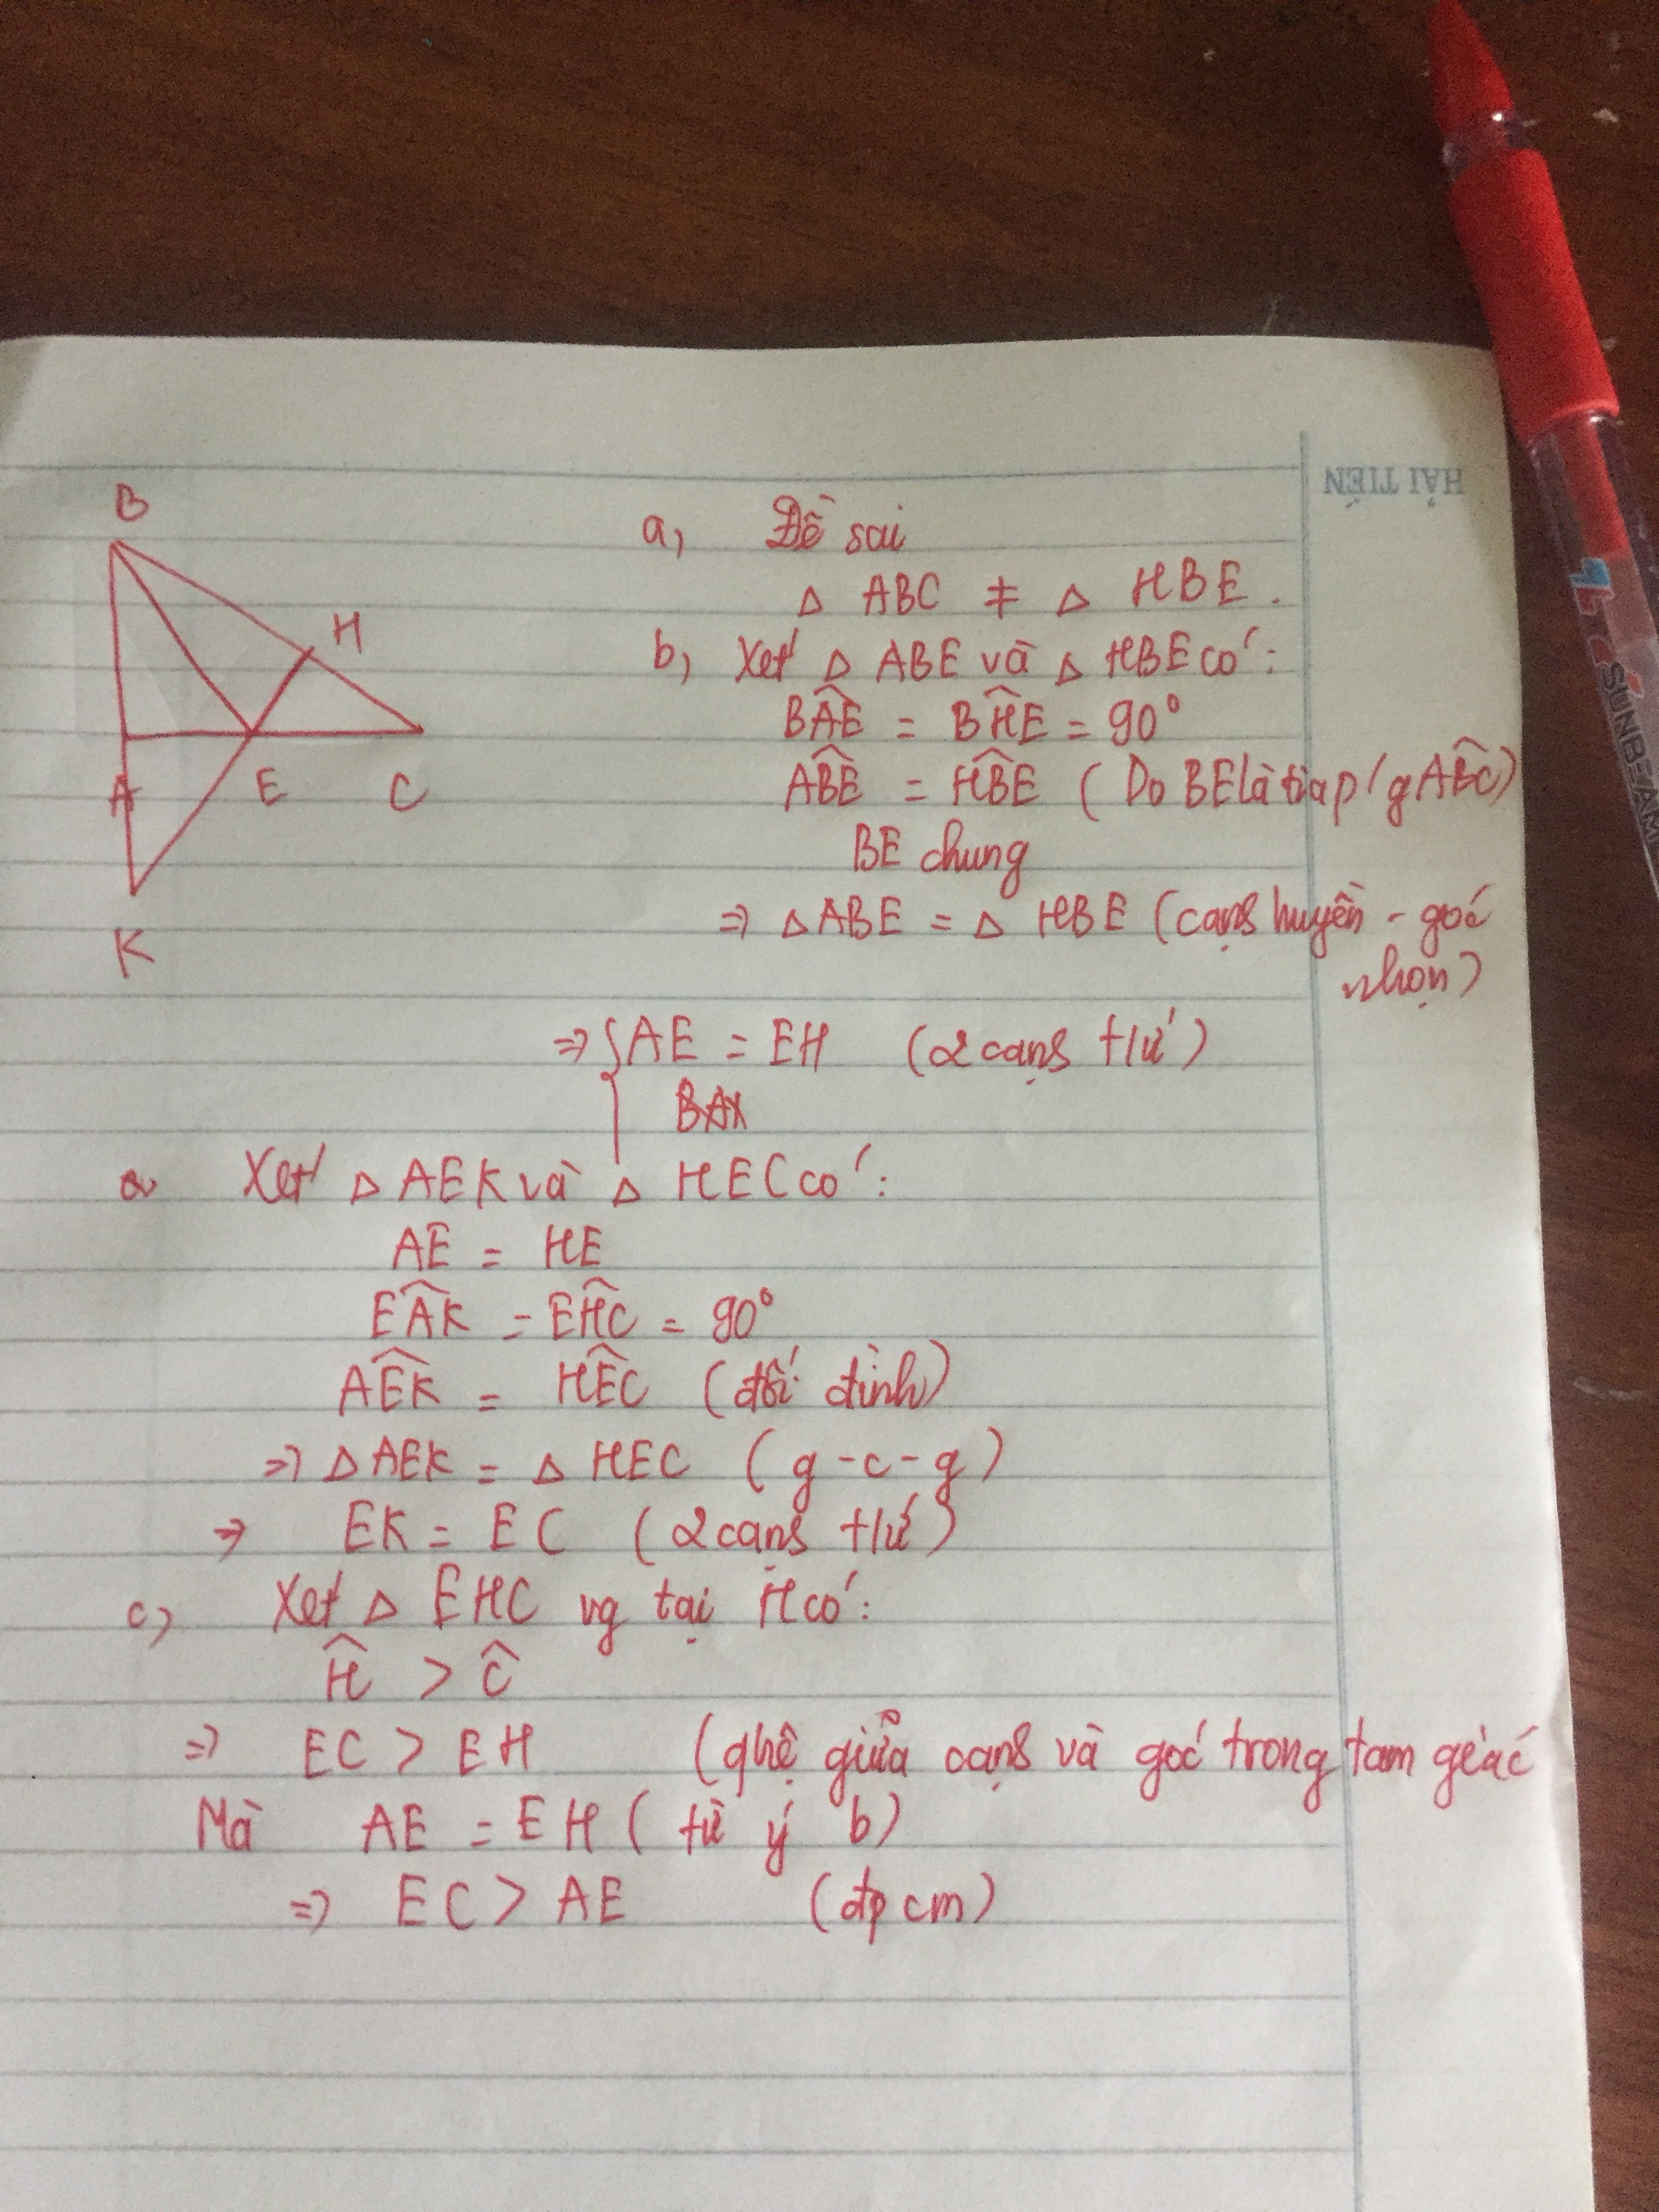 B
H
A
E
C
K
HẢI TIẾN
SUNBEAM
a, Đề sai
△ ABC ≠ △ HBE.
b, Xét △ ABE và △ HBE có:
BÂE = BĤE = 90°
AB̂E = HB̂E (Do BE là tia p/g AB̂C)
BE chung
=> △ ABE = △ HBE (cạnh huyền - góc
nhọn)
=> { AE = EH (2 cạnh t/ứ)
Xét △ AEK và △ HEC có:
AE = HE
EÂK = EĤC = 90°
AÊK = HÊC (đối đỉnh)
=> △ AEK = △ HEC (g-c-g)
=> EK = EC (2 cạnh t/ứ)
c, Xét △ EHC vg tại H có:
Ĥ > Ĉ
=> EC > EH (qhệ giữa cạnh và góc trong tam giác
Mà AE = EH (từ ý b)
=> EC > AE (đpcm)